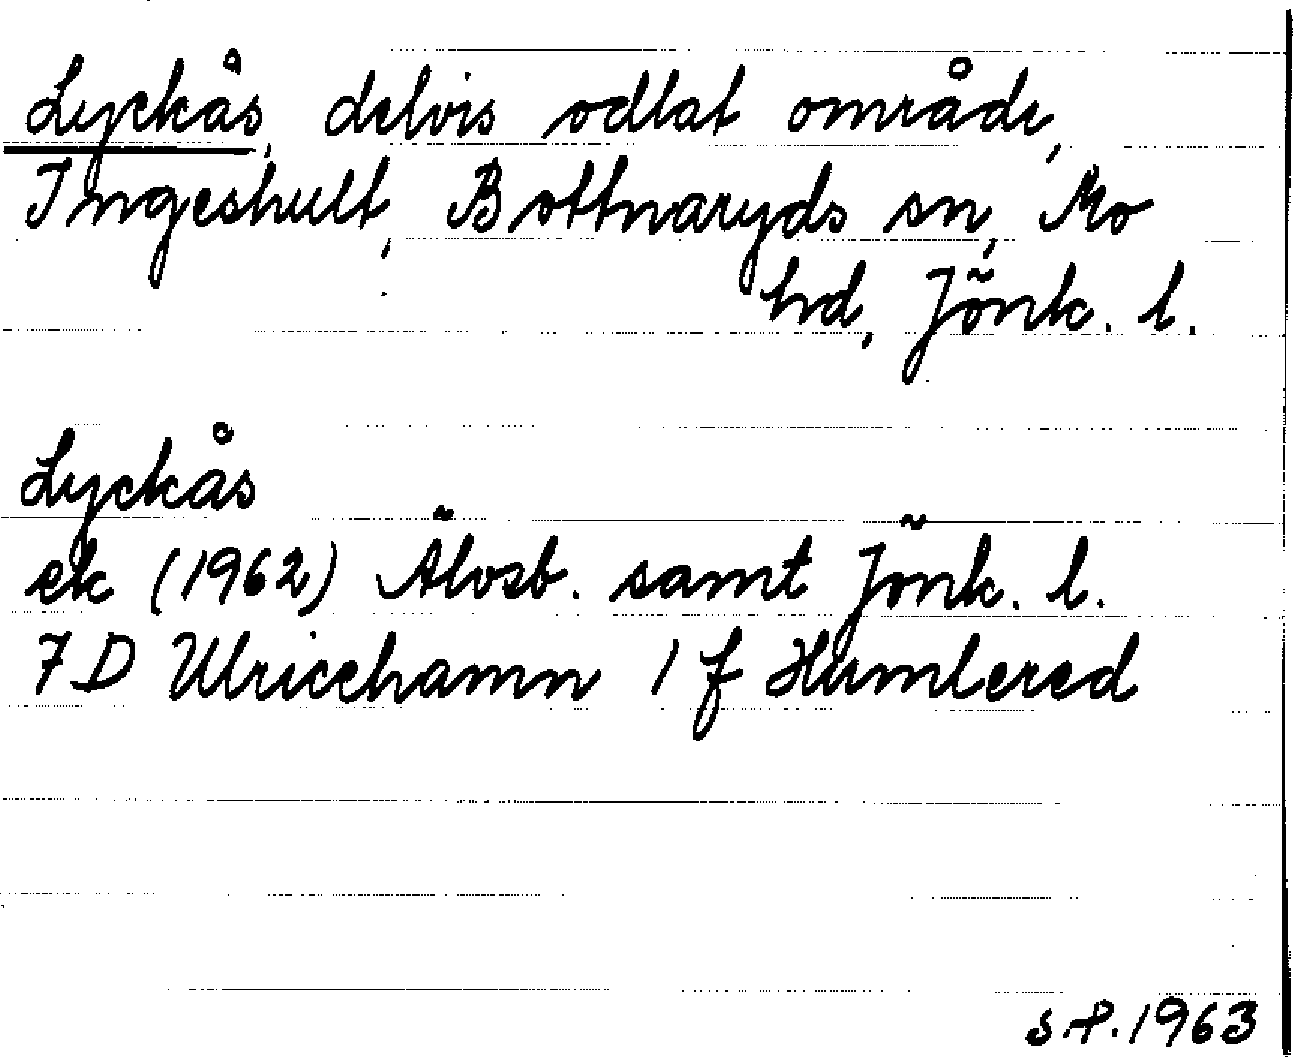 Lyckås, delvis odlat område,
Ingeshult, Bottnaryds sn, Mo
hd, Jönk. l.
Lyckås
ek (1962) Älvsb. samt Jönk. l.
7 D Ulricehamn 1 f Humlered
S.P. 1963